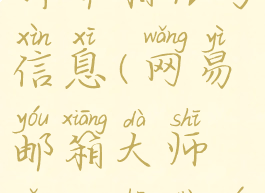 xìn xī wǎng yì
信息(网易
yóu xiāng dà shī
邮箱大师